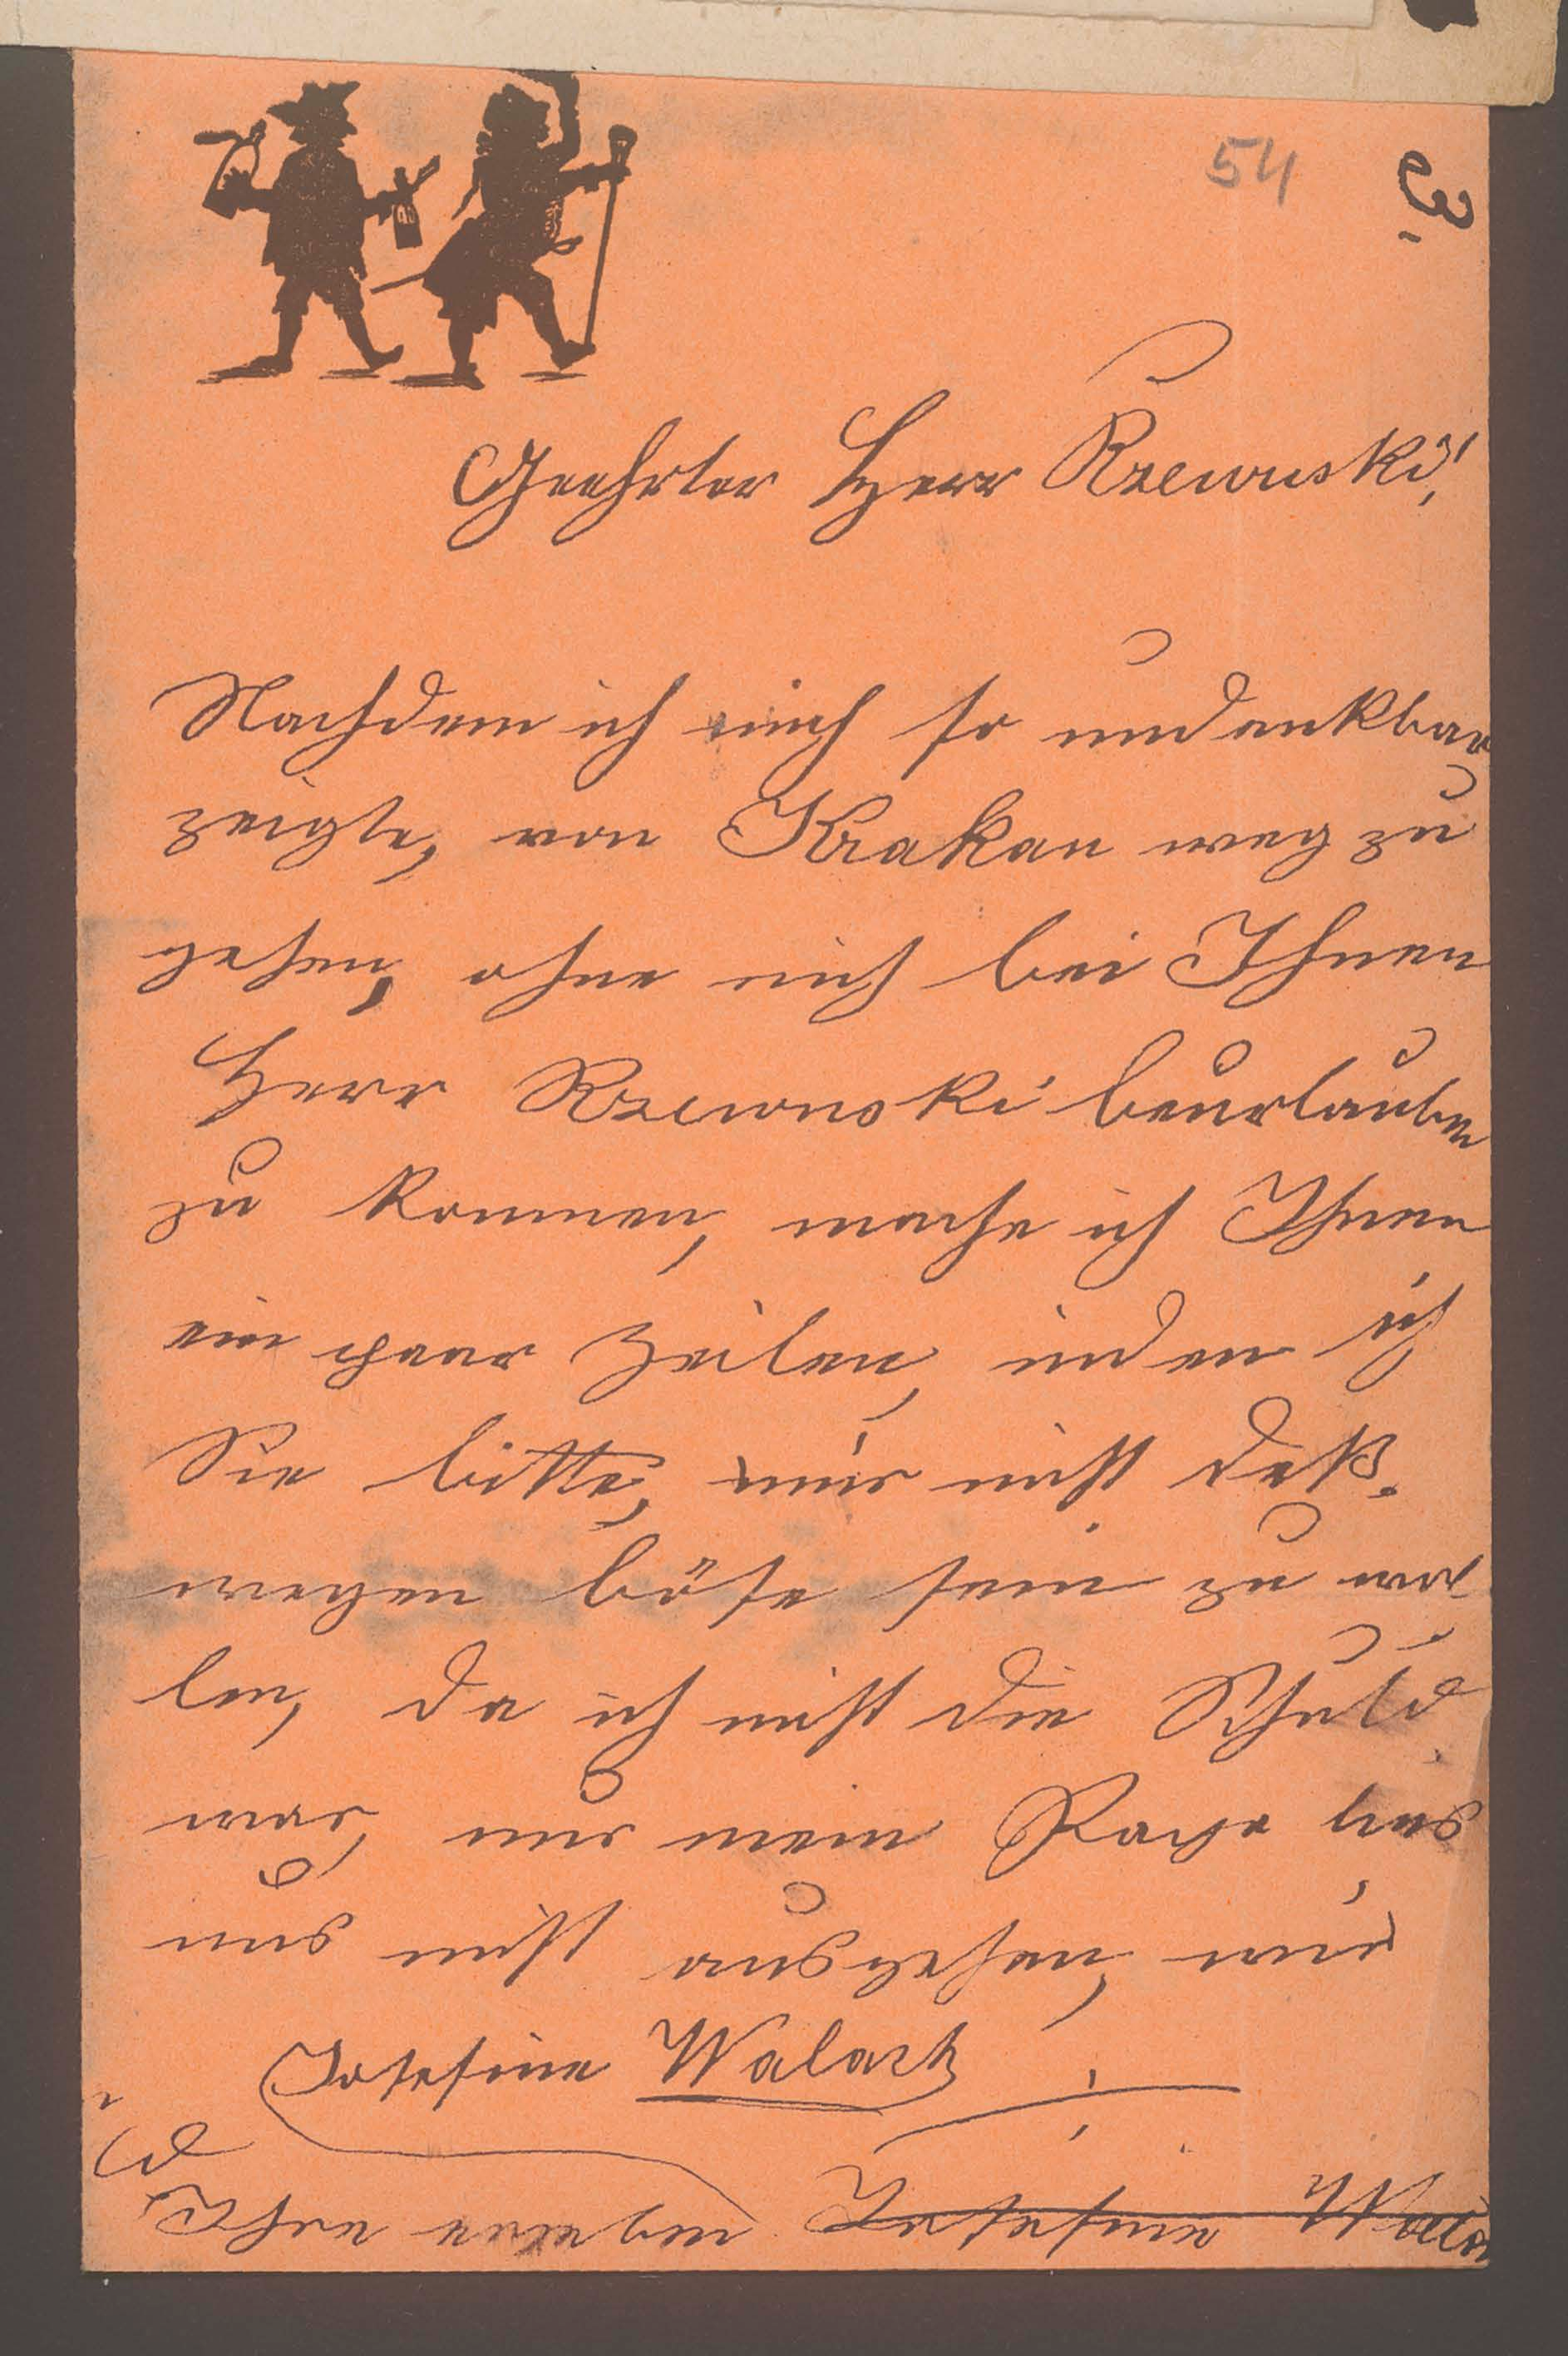 54
3.
Geehrter Herr Rzewuski!
Nachdem ich mich so undankbar
zeigte, von Krakau weg zu
gehen, ohne mich bei Ihnen
Herr Rzewuski beurlauben
zu kommen, mache ich Ihnen
ein paar Zeilen, indem ich
Sie bitte, mir nicht deß-
wegen böse sein zu wol-
len, da ich nicht die Schuld
war, nur mein Papa ließ
uns nicht ausgehen, und
Josefine Walach
Ihre ergeben Josefine